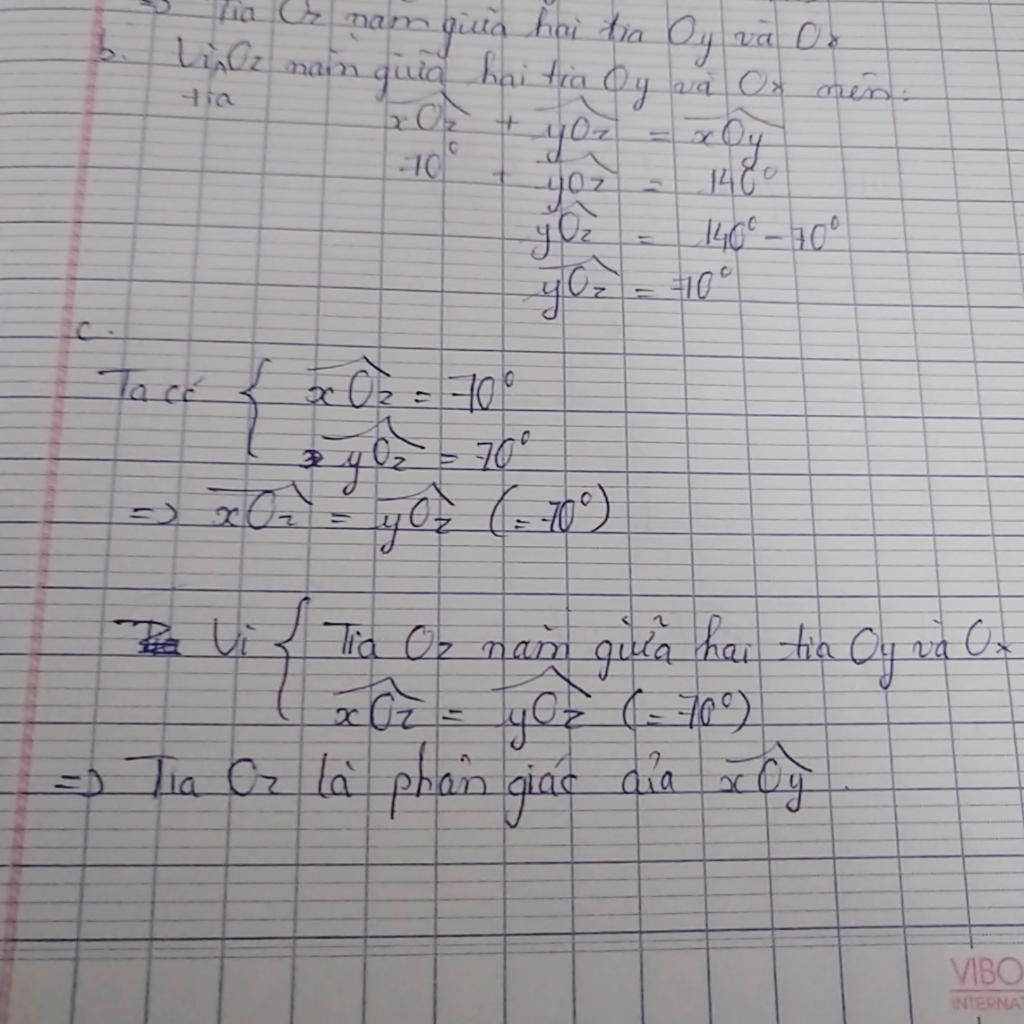 => Tia Oz nằm giữa hai tia Oy và Ox
b. Vì tia Oz nằm giữa hai tia Oy và Ox nên:
xOz + yOz = xOy
70° + yOz = 140°
yOz = 140° - 70°
yOz = 70°
c.
Ta có { xOz = 70°
yOz = 70°
=> xOz = yOz (= 70°)
Vì { Tia Oz nằm giữa hai tia Oy và Ox
xOz = yOz (= 70°)
=> Tia Oz là phân giác của xOy.
VIBO
INTERNA